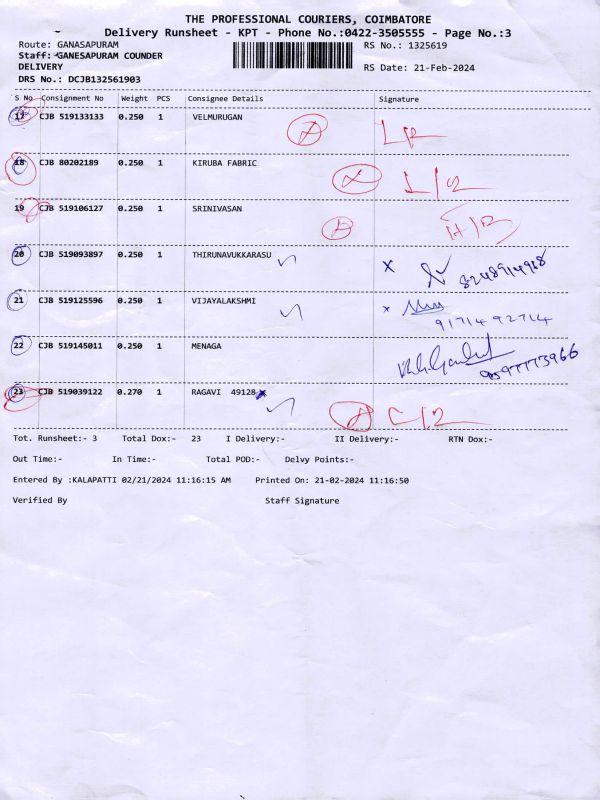 THE PROFESSIONAL COURIERS, COIMBATORE
Delivery Runsheet - KPT - Phone No.:0422-3505555 - Page No.:3
Route: GANASAPURAM RS No.: 1325619
Staff: GANESAPURAM COUNDER
DELIVERY RS Date: 21-Feb-2024
DRS No.: DCJB132561903
S No Consignment No Weight PCS Consignee Details Signature
17 CJB 519133133 0.250 1 VELMURUGAN
18 CJB 80202189 0.250 1 KIRUBA FABRIC
19 CJB 519106127 0.250 1 SRINIVASAN
20 CJB 519093897 0.250 1 THIRUNAVUKKARASU x
21 CJB 519125596 0.250 1 VIJAYALAKSHMI x
9171492714
22 CJB 519145011 0.250 1 MENAGA
23 CJB 519039122 0.270 1 RAGAVI 49128
Tot. Runsheet:- 3 Total Dox:- 23 I Delivery:- II Delivery:- RTN Dox:-
Out Time:- In Time:- Total POD:- Delvy Points:-
Entered By :KALAPATTI 02/21/2024 11:16:15 AM Printed On: 21-02-2024 11:16:50
Verified By Staff Signature